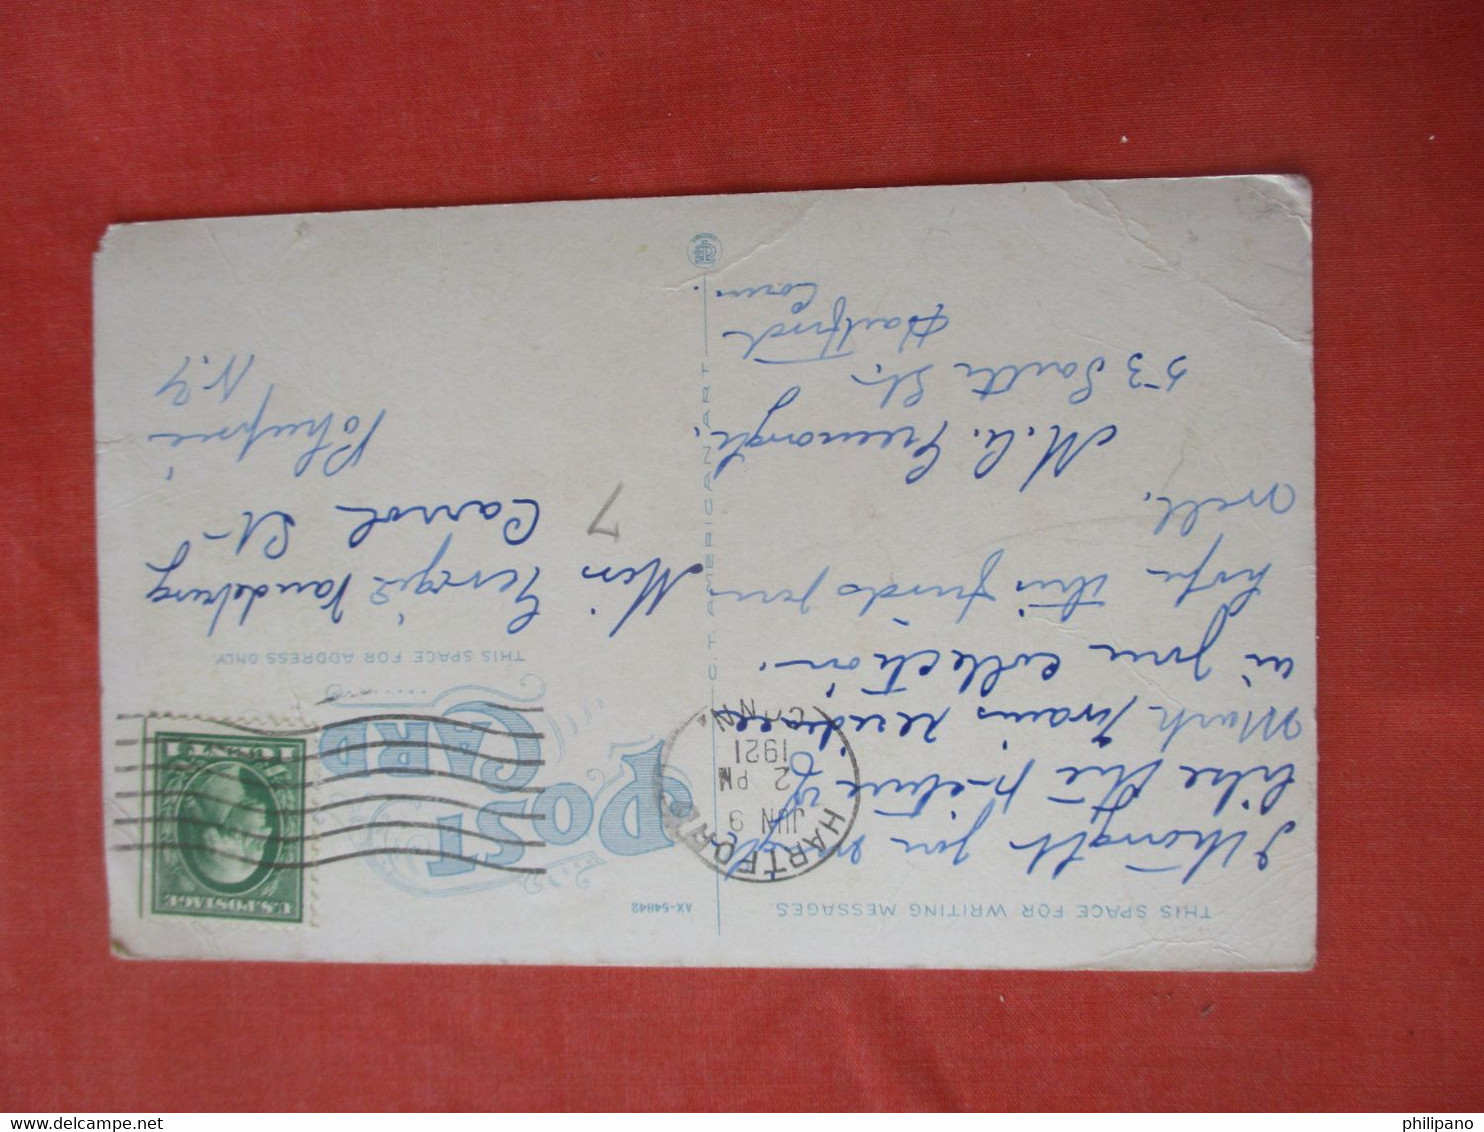 THIS SPACE FOR WRITING MESSAGES
I thought you might
like the picture of
Mark Twains residence
in your collection.
hope this finds you
well.
M. A.
53 South St.
Hartford
Conn.
HARTFORD
JUN 9
2 PM
1921
CONN.
C. T. AMERICAN ART
AX-54842
POST
CARD
THIS SPACE FOR ADDRESS ONLY
U.S. POSTAGE
1 CENT 1
Miss Georgie Vandeburg
Carrol St.
7
N.Y
delcampe.net
philipano